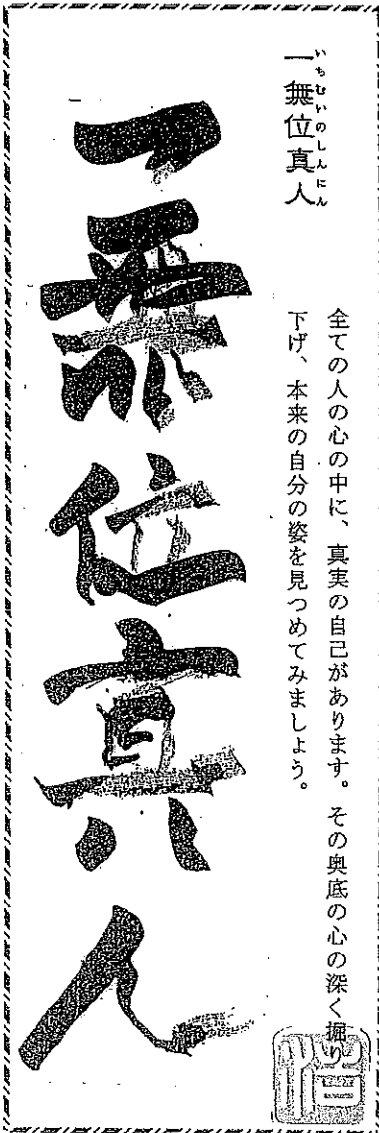 いちむいのしんにん
一無位真人
全ての人の心の中に、真実の自己があります。その奥底の心の深く掘り
下げ、本来の自分の姿を見つめてみましょう。
一無位真人